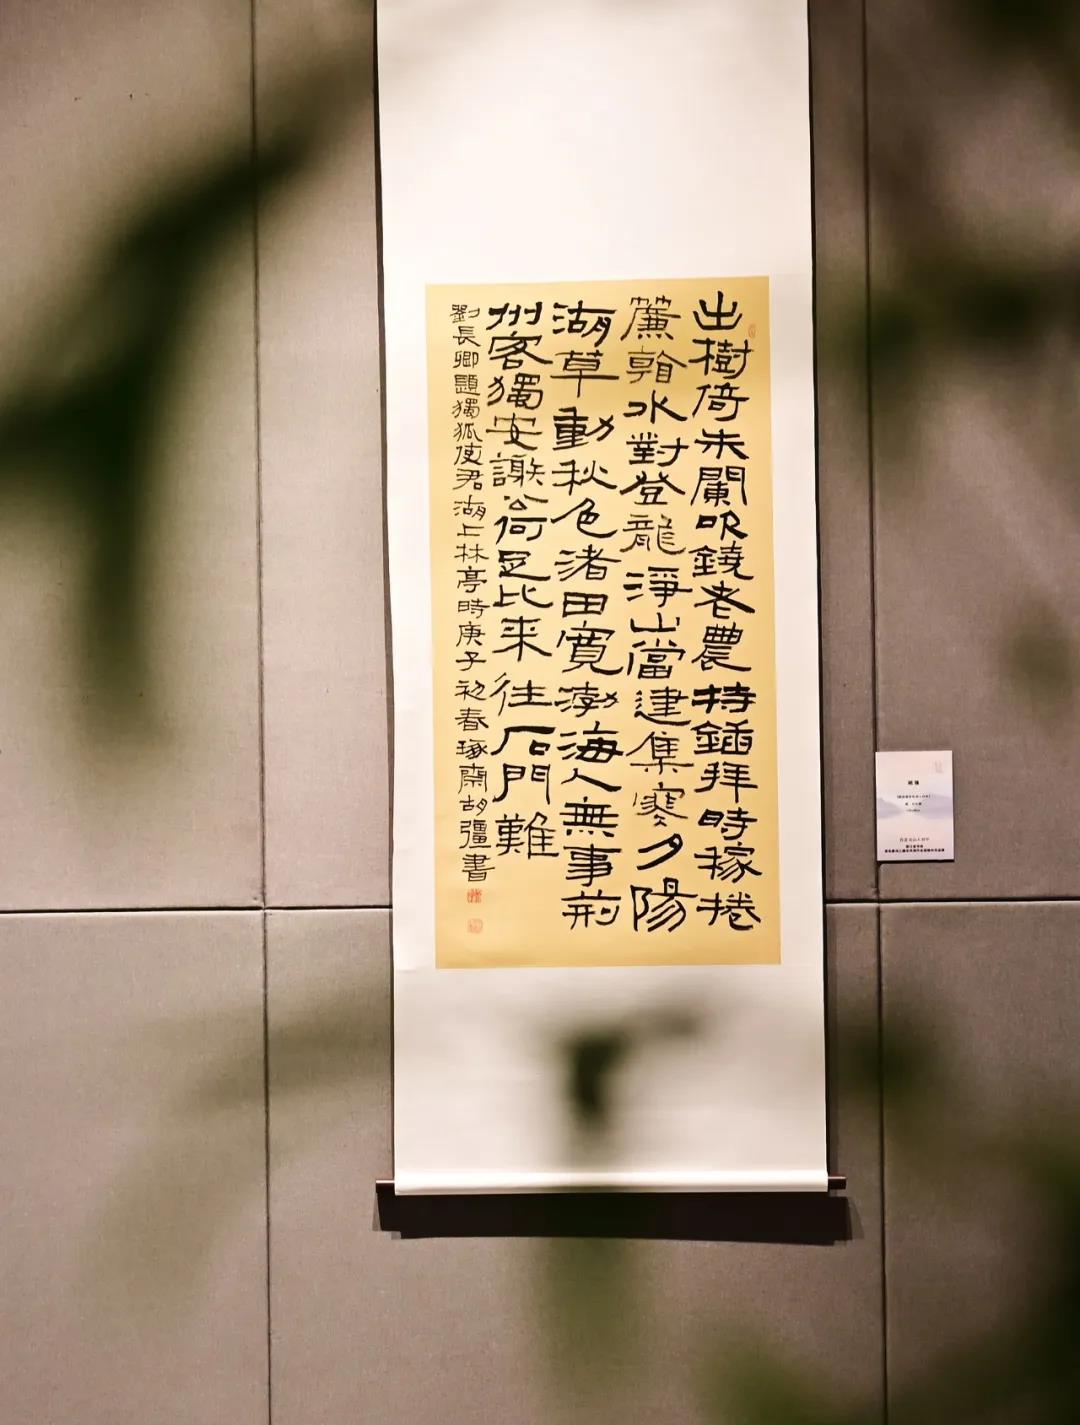 出樹倚朱闌吹鐃老農持鍤拜時稼捲
簾𩏑水對登龍淨山當建集寒夕陽
湖草動秋色渚田寬渤海人無事荊
州客獨安謝公何足比来往石門難
劉長卿題獨狐使君湖上林亭時庚子初春琢齋胡彊書